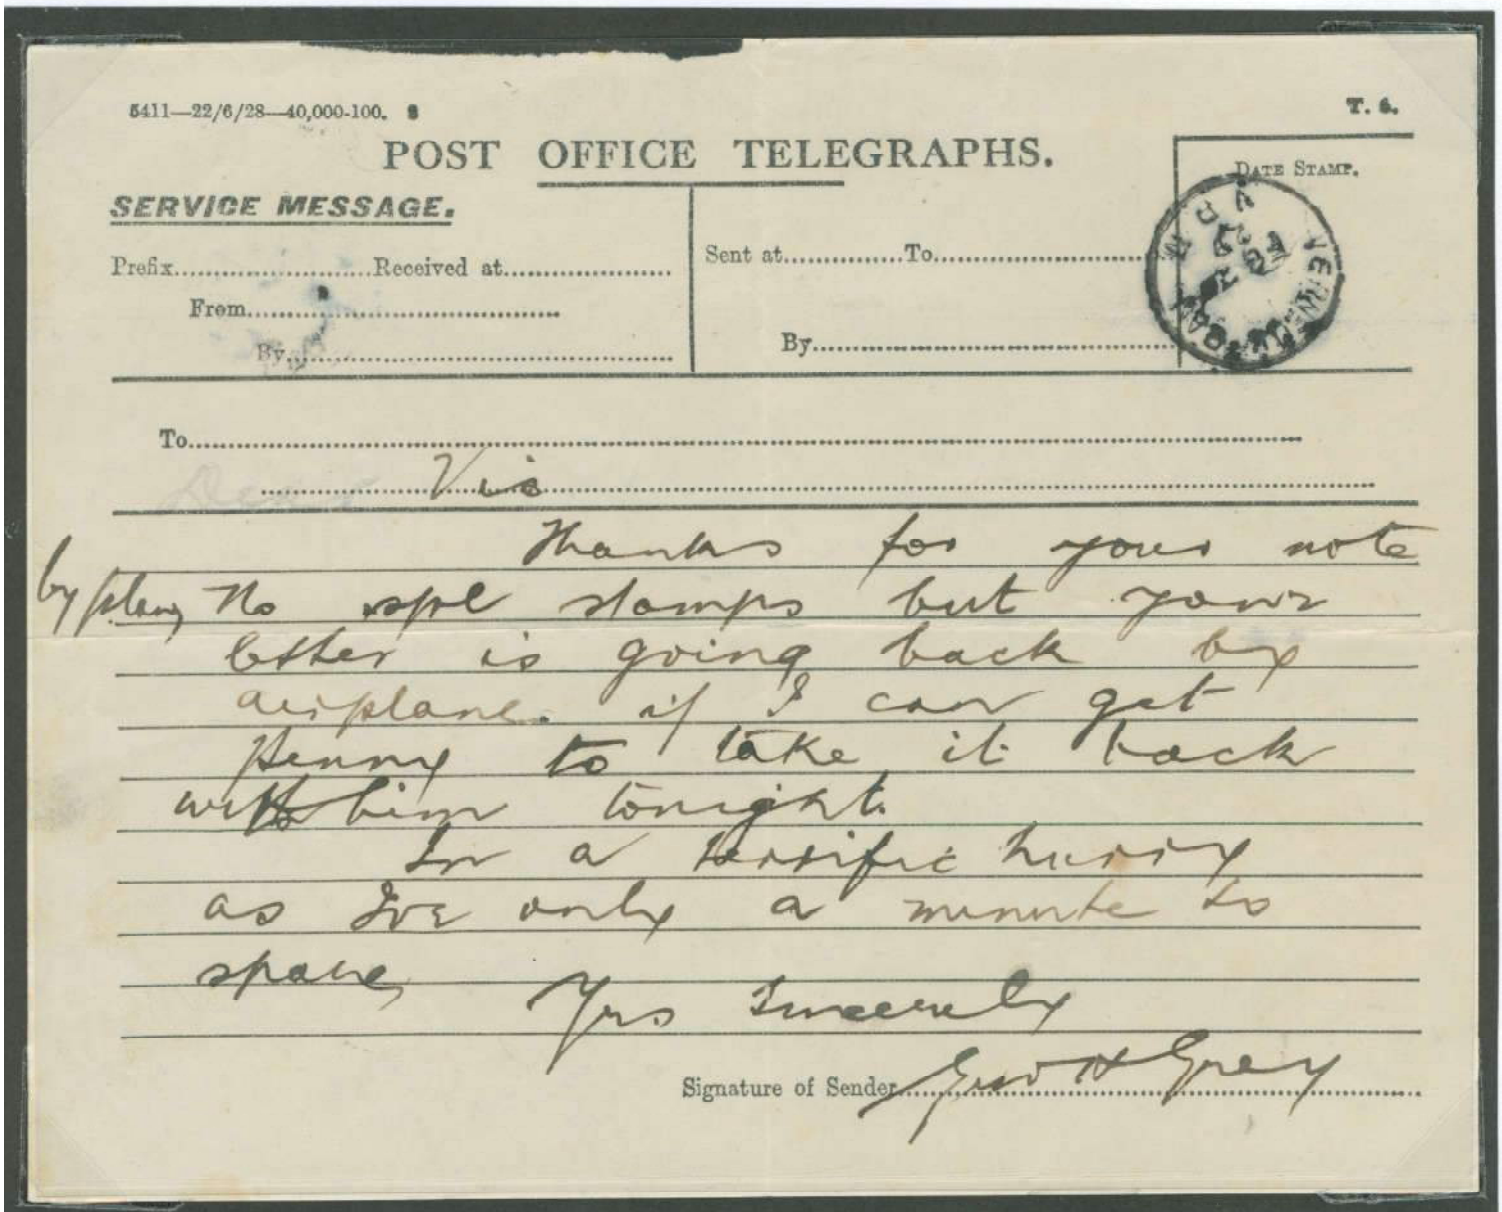 5411—22/6/28—40,000-100.
T. 6.
POST OFFICE TELEGRAPHS.
DATE STAMP.
SERVICE MESSAGE.
Prefix.....................Received at..................
Sent at.............To......................
From.......................................
By................................................
By...........................................
To.....................................................................
Dear Vic
Thanks for your note
by plane, No spl stamps but your
letter is going back by
airplane. if I can get
Henny to take it back
with him tonight.
In a terrific hurry
as I've only a minute to
spare,
Yrs Sincerely
Signature of Sender Geo H Grey